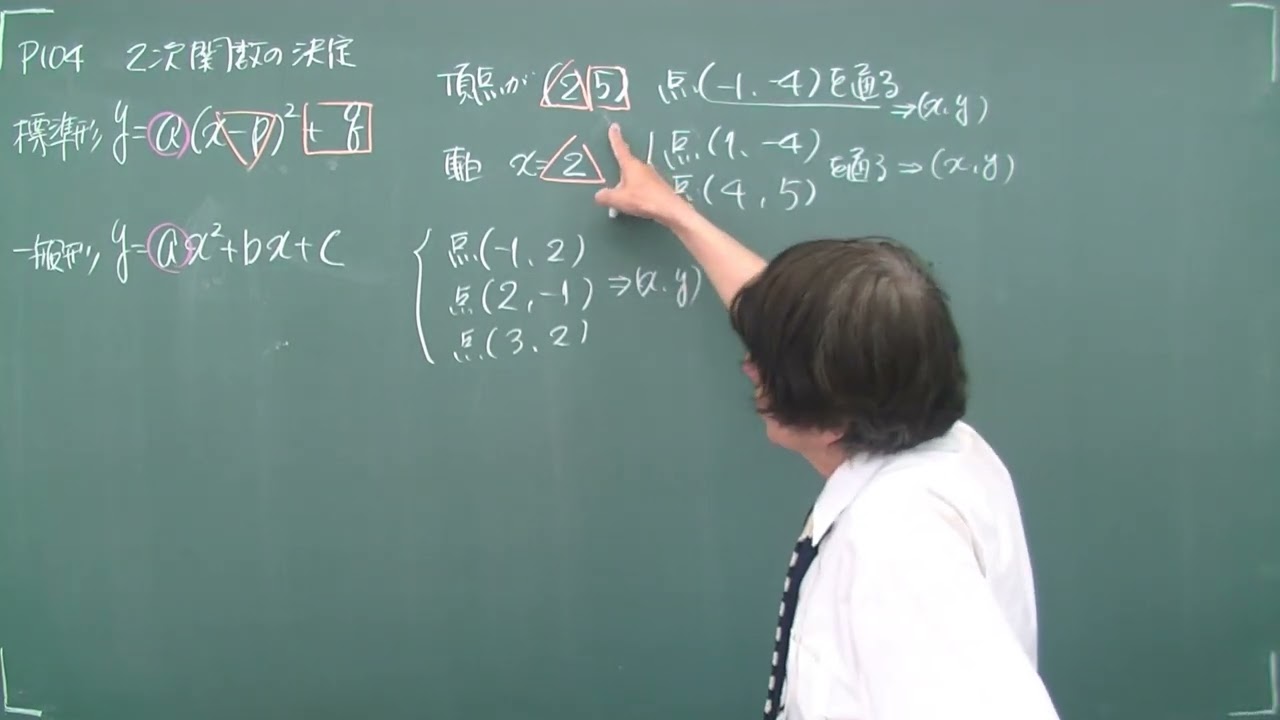 P104 2次関数の決定
標準形 y=a(x-p)²+q
一般形 y=ax²+bx+c
頂点が(2 5) 点(-1, -4)を通る ⇒(x,y)
軸 x=2 点(1, -4)
点(4, 5) を通る ⇒(x,y)
点(-1, 2)
点(2, -1) ⇒(x,y)
点(3, 2)